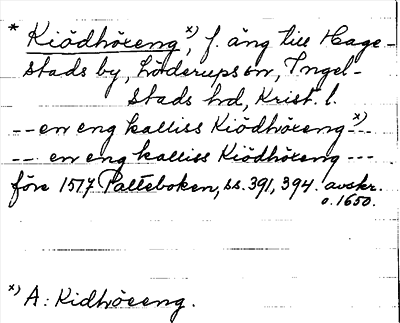 * Kiödhöreng x), f. äng till Hage-
stads by, Löderups sn, Ingel-
stads hd, Krist. l.
-- en eng kalliss Kiödhöreng x)--
-- en eng kalliss Kiödhöreng ---
före 1517 Palteboken, ss. 391, 394. avskr.
o. 1650.
x) A: Kidhöreng.